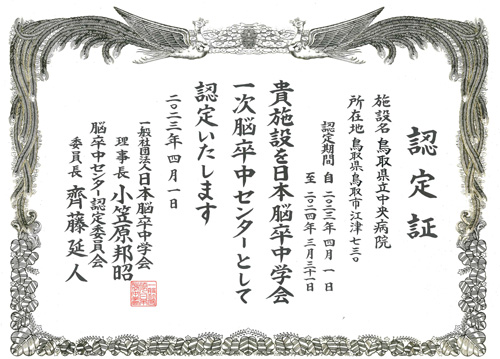 認定証
施設名 鳥取県立中央病院
所在地 鳥取県鳥取市江津七三〇
認定期間 自 二〇二三年 四月 一日
至 二〇二四年 三月三十一日
貴施設を日本脳卒中学会
一次脳卒中センターとして
認定いたします
二〇二三年 四月 一日
一般社団法人日本脳卒中学会
理事長 小笠原邦昭
脳卒中センター認定委員会
委員長 齊藤延人